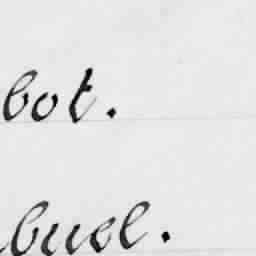 bot.
buel.